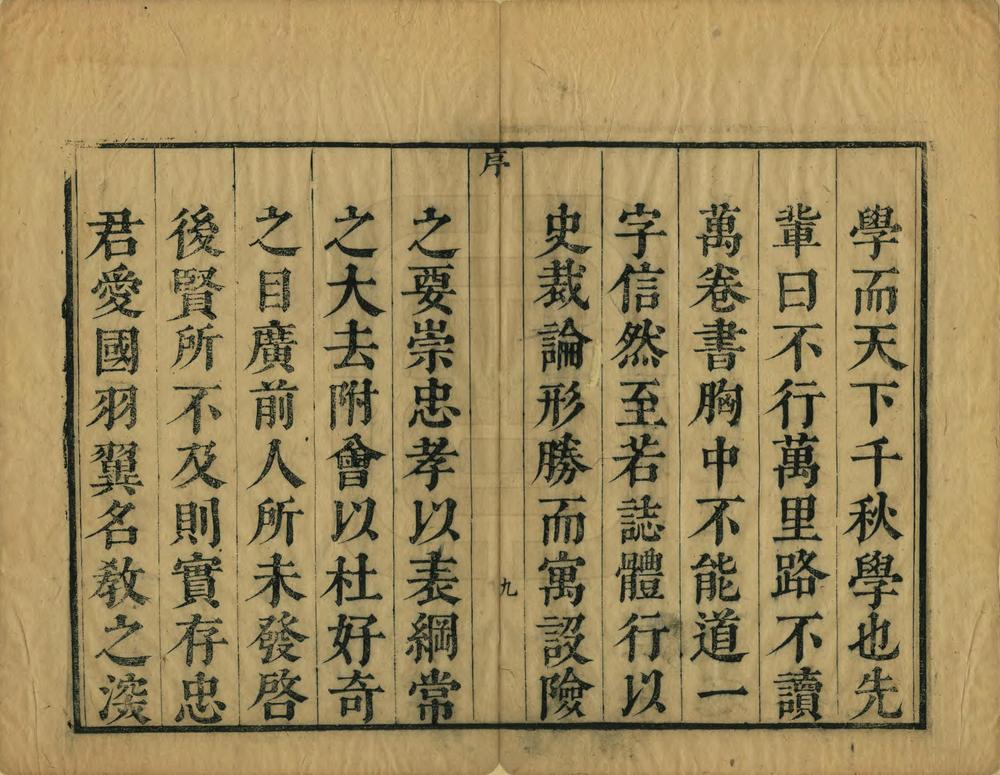 學而天下千秋學也先
軰曰不行萬里路不讀
萬卷書胸中不能道一
字信然至若誌體行以
史裁論形勝而寓設險
序
九
之要崇忠孝以表綱常
之大去附會以杜好奇
之目廣前人所未發啓
後賢所不及則實存忠
君愛國羽翼名教之深